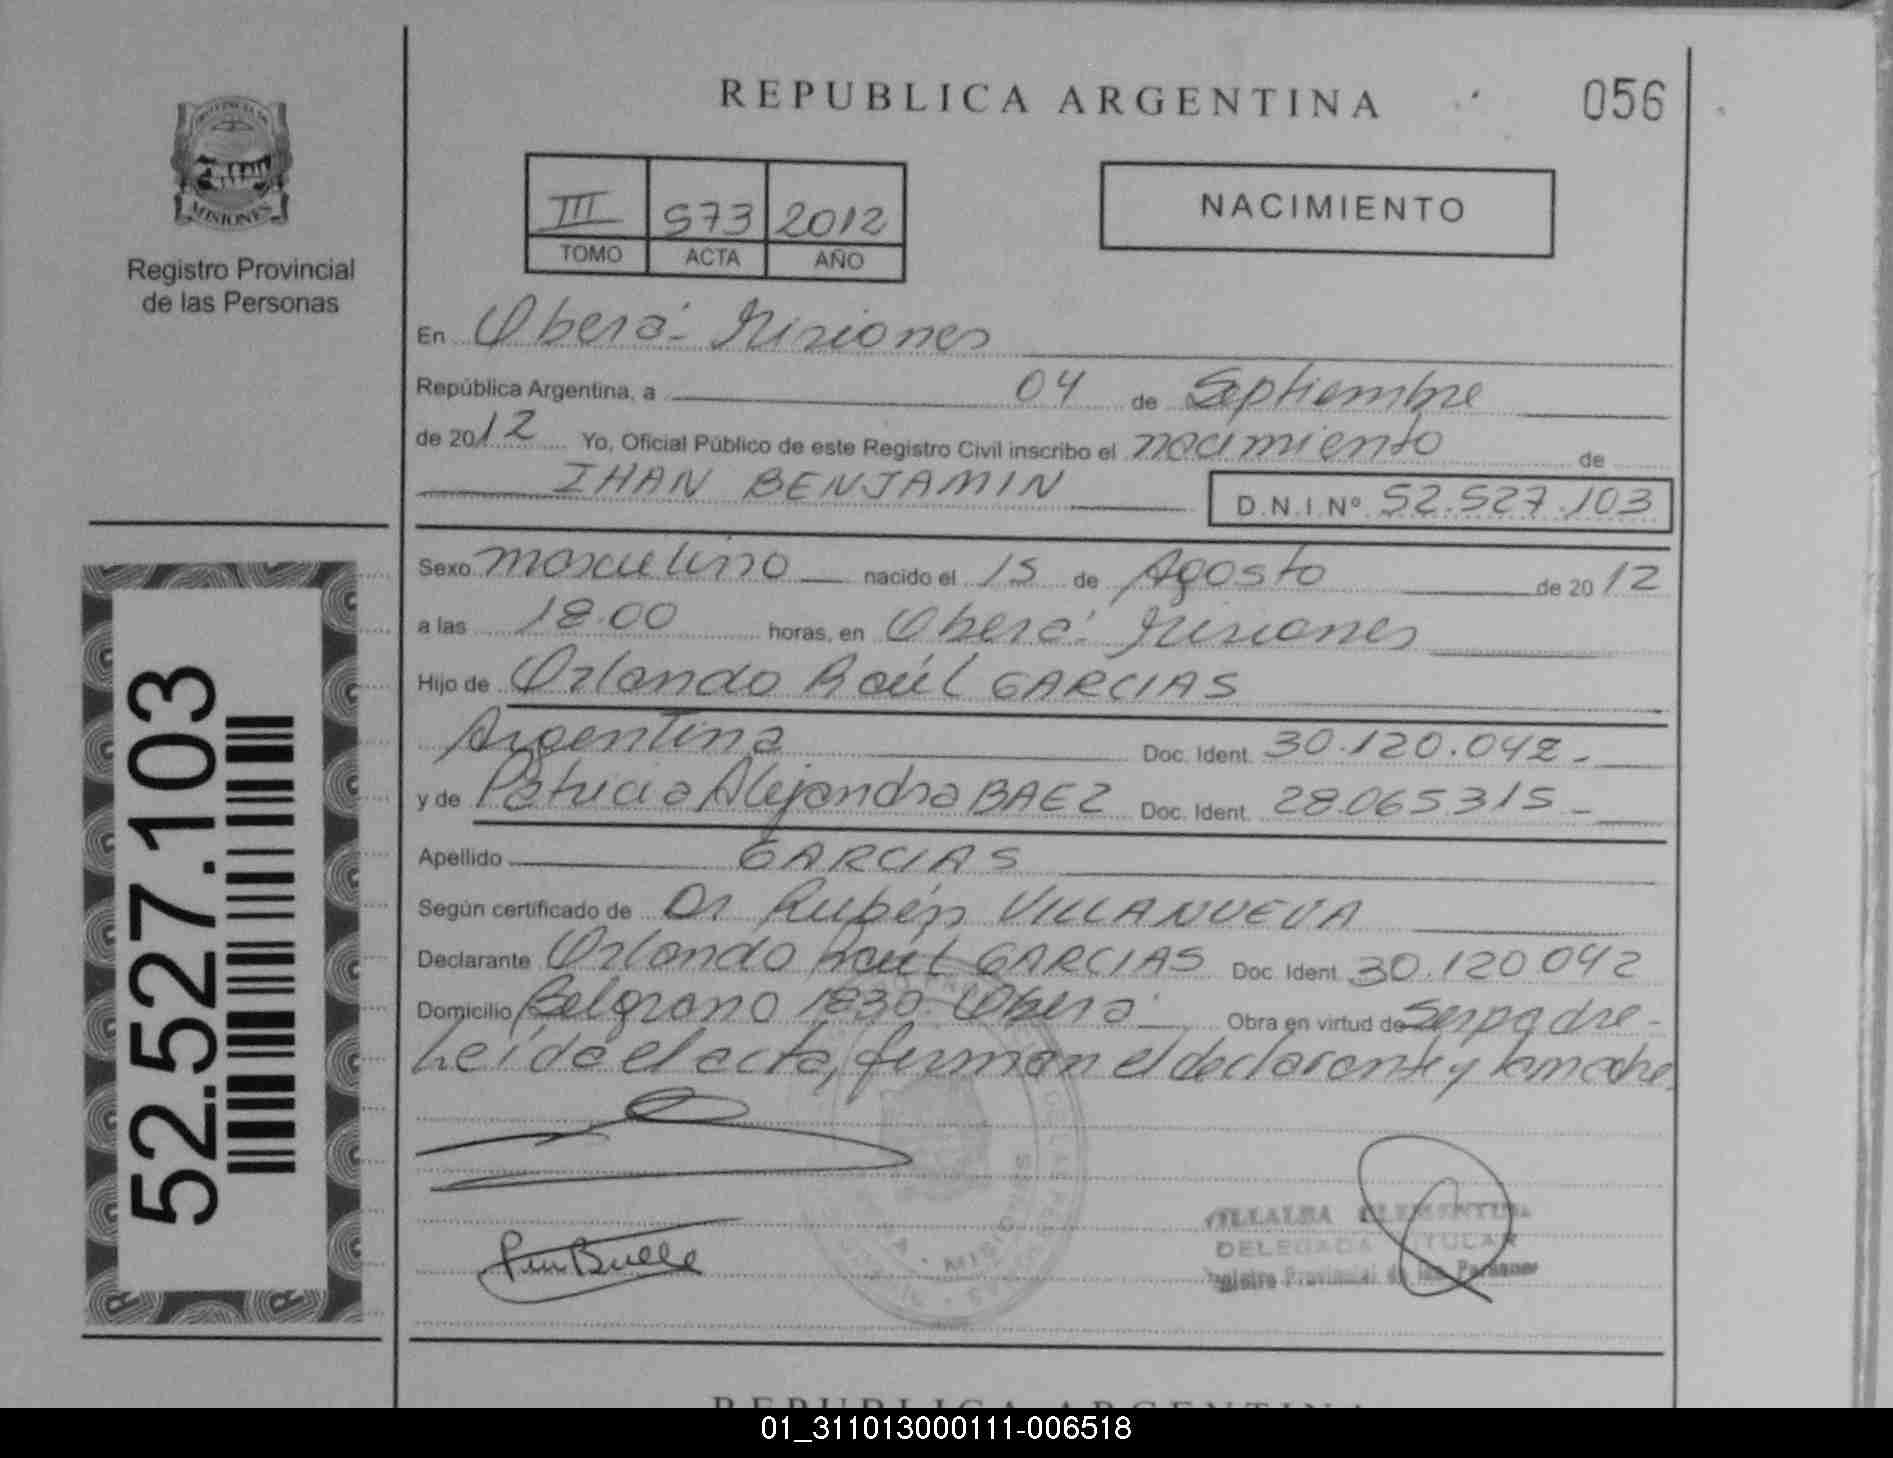 REPUBLICA ARGENTINA
056
MISIONES
Registro Provincial
de las Personas
III 573 2012
TOMO ACTA AÑO
NACIMIENTO
En Oberá- Misiones
República Argentina, a 04 de Septiembre
de 2012 Yo, Oficial Público de este Registro Civil inscribo el nacimiento de
IHAN BENJAMIN D.N.I.Nº 52.527.103
Sexo masculino nacido el 15 de Agosto de 2012
a las 18.00 horas, en Oberá- Misiones
Hijo de Orlando Raúl GARCIAS
Argentina Doc. Ident. 30.120.042-
y de Patricia Alejandra BAEZ Doc. Ident. 28.065315-
Apellido GARCIAS
Según certificado de Dr Rubén VILLANUEVA
Declarante Orlando Raúl GARCIAS Doc. Ident. 30.120042
Domicilio Belgrano 1830- Oberá Obra en virtud de Ser padre-
Leída el acta, firman el declarante y la madre.
52.527.103
VILLALBA CLEMENTINA
DELEGADA TITULAR
Registro Provincial de las Personas
REPUBLICA ARGENTINA
01_311013000111-006518